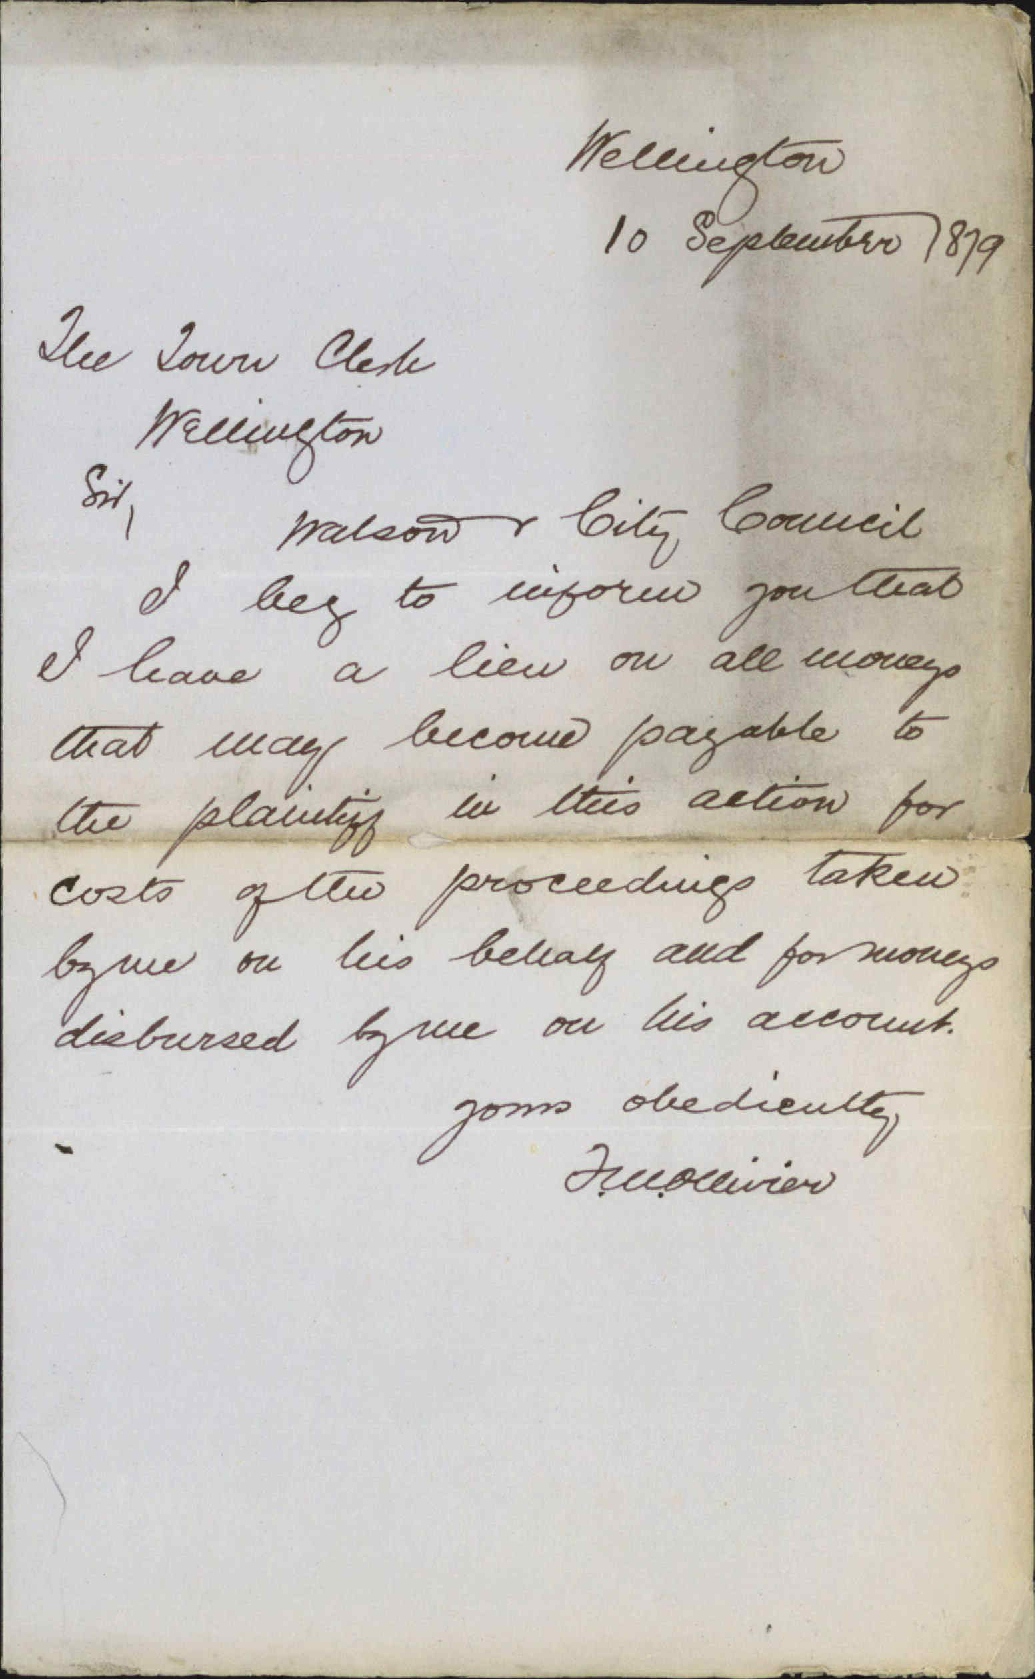 Wellington
10 September 1879
The Town Clerk
Wellington
Sir,
Watson v City Council
I beg to inform you that
I have a lien on all moneys
that may become payable to
the plaintiff in this action for
costs of the proceedings taken
by me on his behalf and for moneys
disbursed by me on his account.
yours obediently
F.M.Ollivier